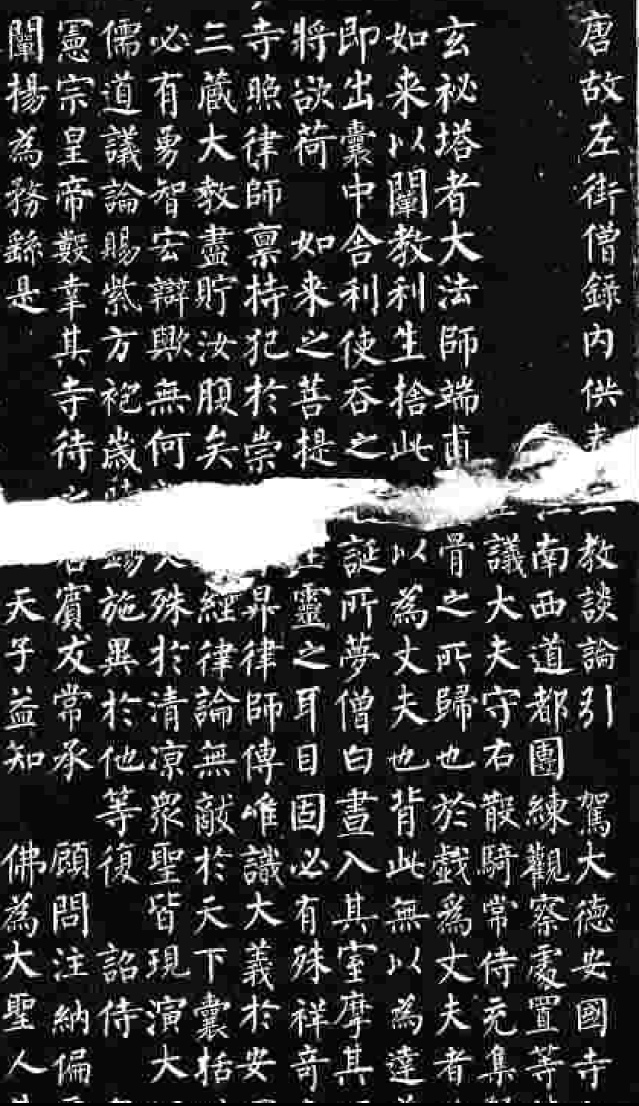 唐故左街僧録内供 教談論引 駕大德安國寺
南西道都團練觀察處置等
議大夫守右散騎常侍充集
玄祕塔者大法師端甫 骨之所歸也於戲為丈夫者
如来以闡教利生捨此 以為丈夫也背此無以為達
即出囊中舍利使吞之 誕所夢僧白晝入其室摩其
將欲荷 如来之菩提 靈之耳目固必有殊祥奇
寺照律師禀持犯於崇 昇律師傳唯識大義於安
三藏大教盡貯汝腹矣 經律論無敵於天下囊括
必有勇智宏辯歟無何 殊於清涼衆聖皆現演大
儒道議論賜紫方袍歲 錫施異於他等復 詔侍
憲宗皇帝數幸其寺待 賓友常承 顧問注納偏
闡揚為務繇是 天子益知 佛為大聖人